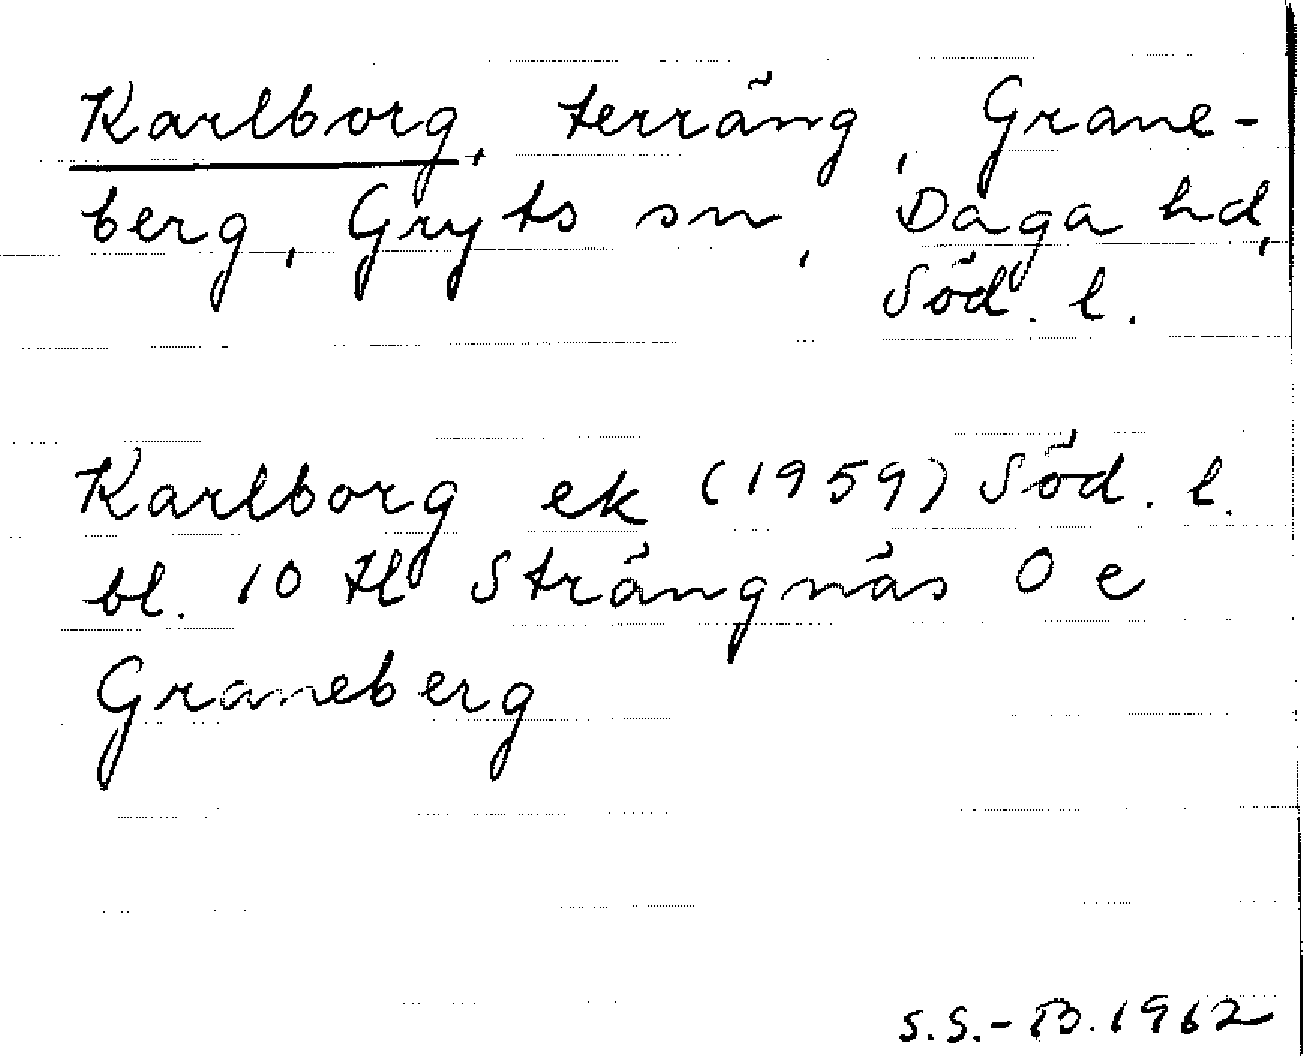 Karlborg, terräng, Grane-
berg, Gryts sn, Daga hd,
Söd. l.
Karlborg ek (1959) Söd. l.
bl. 10 H Strängnäs 0 e
Graneberg
S.S.-B. 1962